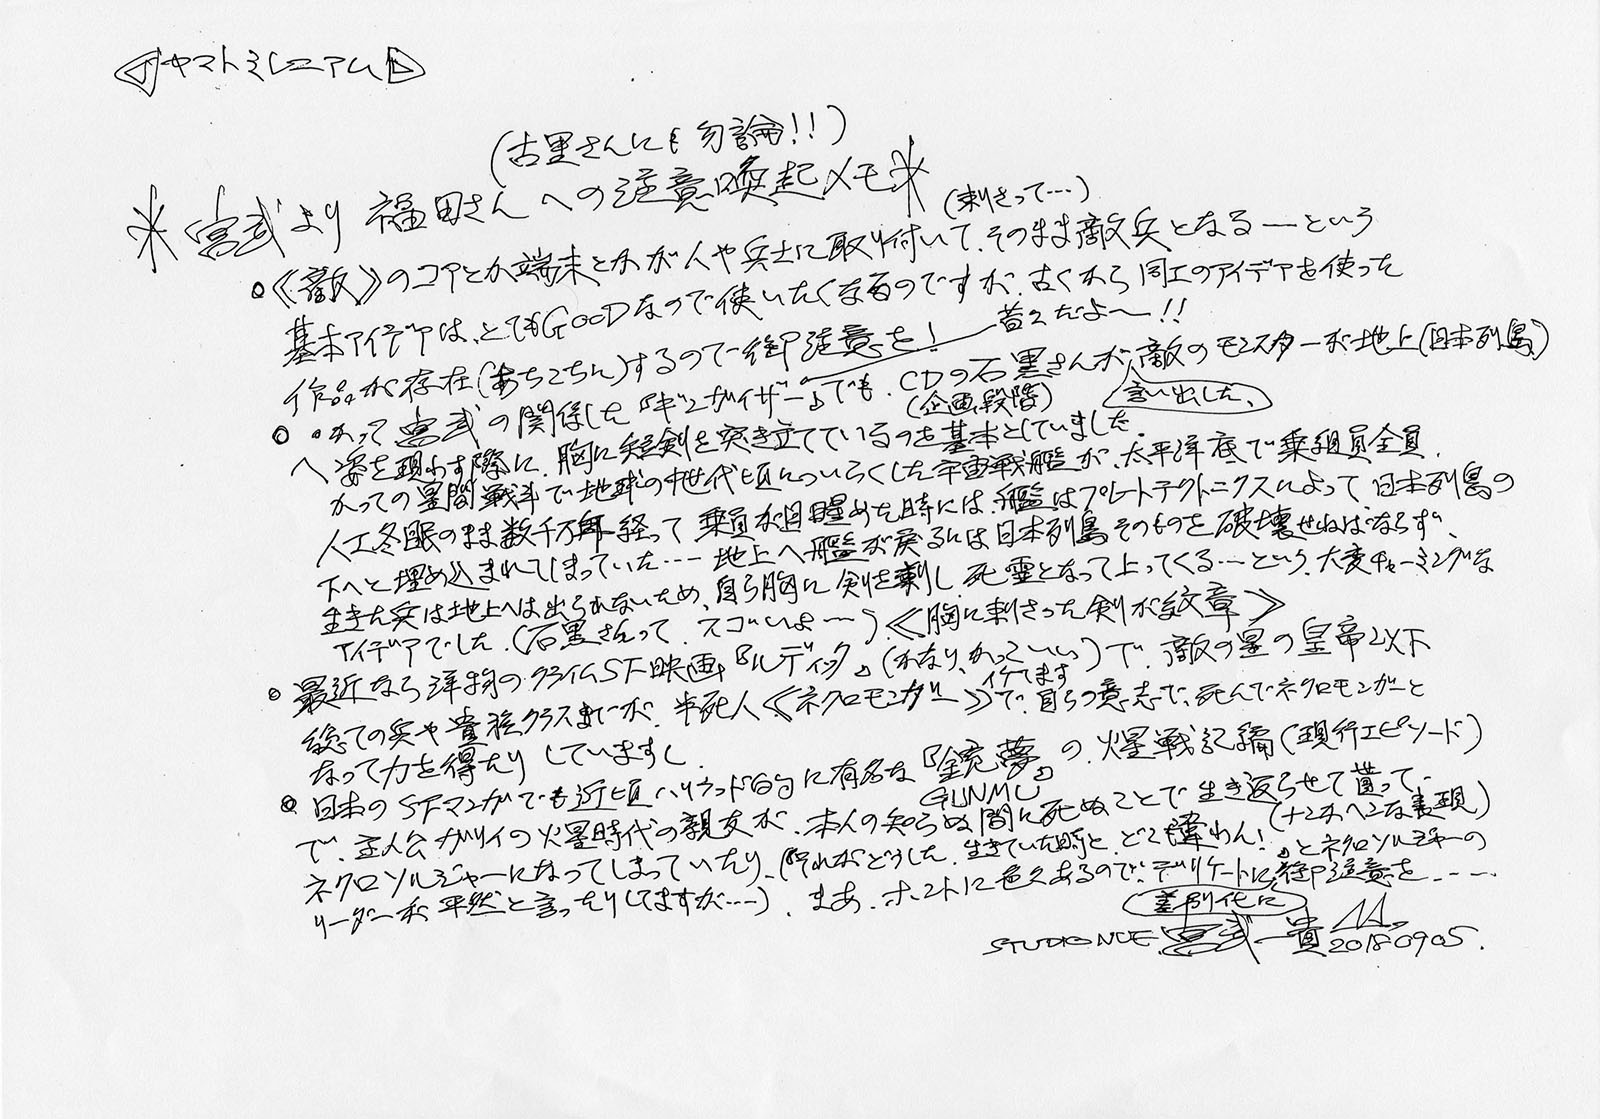 ヤマトミレニアム
(古里さんにも勿論!!)
※宮武より福田さんへの注意喚起メモ※
(刺さって…)
◦《敵》のコアとか端末とかが人や兵士に取り付いて、そのまま敵兵となるーという
基本アイデアは、とてもGOODなので使いたくなるのですが、古くから同工のアイデアを使った
作品が存在(あちこちに)するので御注意を!
昔々だよ〜!!
◦かつて宮武の関係した『ギンガイザー』でも、CDの石黒さんが、敵のモンスターが地上(日本列島)
(企画段階)
言い出した、
へ姿を現わす際に、胸に短剣を突き立てているのを基本としていました。
かつての星間戦斗で地球の中世代頃についらくした宇宙戦艦が、太平洋底で乗組員全員、
人工冬眠のまま数千万年経って乗員が目醒めた時には、艦はプレートテクトニクスによって日本列島の
下へと埋め込まれてしまっていた…地上へ艦が戻るには日本列島そのものを破壊せねばならず、
生きた兵は地上へは出られないため、自ら胸に剣を刺し、死霊となって上ってくる…という、大変チャーミングな
アイデアでした。(石黒さんって、スゴいよ〜)《胸に刺さった剣が紋章》
◦最近なら洋物のクライムSF映画『リディック』(かなり、かっこいい)で、敵の星の皇帝以下
イケてます
総ての兵や貴族クラスまでが、半死人《ネクロモンガー》で、自らの意志で、死んでネクロモンガーと
なって力を得たりしていますし、
◦日本のSFマンガでも近頃ハリウッド的に有名な『銃夢』の火星戦記編(現行エピソード)
GUNMU
で、主人公ガリィの火星時代の親友が、本人の知らぬ間に死ぬことで生き返らせて貰って、
(ナンかヘンな表現)
ネクロソルジャーになってしまっていたり、(『それがどうした、生きていた時と、どこも違わん!』とネクロソルジャーの
リーダーが平然と言ったりしてますが…)、まあ、ホントに色々あるので、デリケートに御注意を----
差別化に
STUDIO NUE 宮武一貴 20180905.